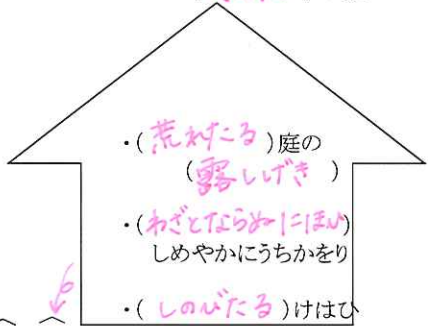 ・(荒れたる)庭の
(露しげき)
・(わざとならぬにほひ)
しめやかにうちかをり
・(しのびたる)けはひ